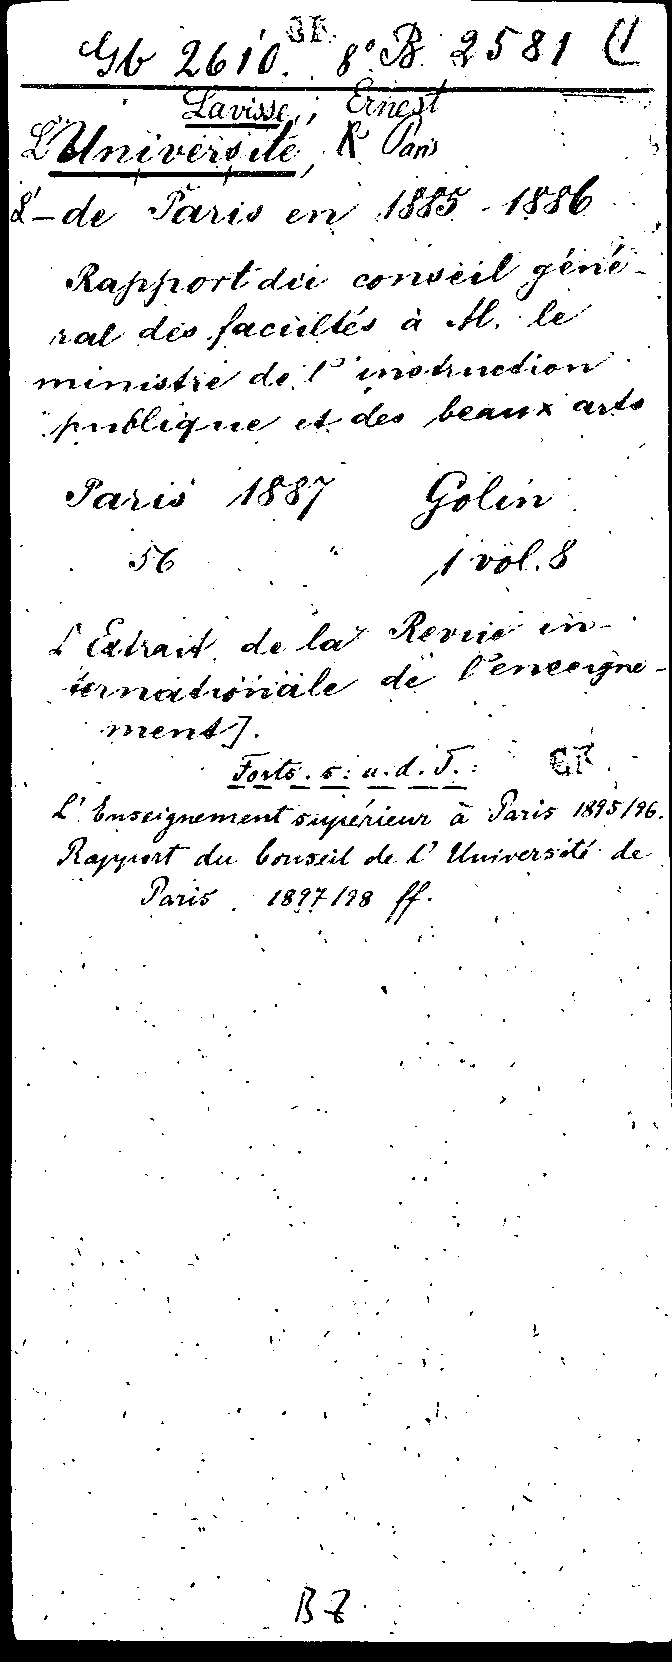 Gb 2610. GF. 8° B. 2581
Lavisse, Ernest
L'Université, K Paris
L'— de Paris en 1885-1886
Rapport du conseil géné-
ral des facultés à M. le
ministre de l'instruction
publique et des beaux arts
Paris 1887 Golin
56 " 1 vol. 8
[Extrait de la Revue in-
ternationale de l'enseigne-
ment].
Forts. s. u. d. T.: GF
L'Enseignement supérieur à Paris 1895/96.
Rapport du Conseil de l'Université de
Paris 1897/98 ff.